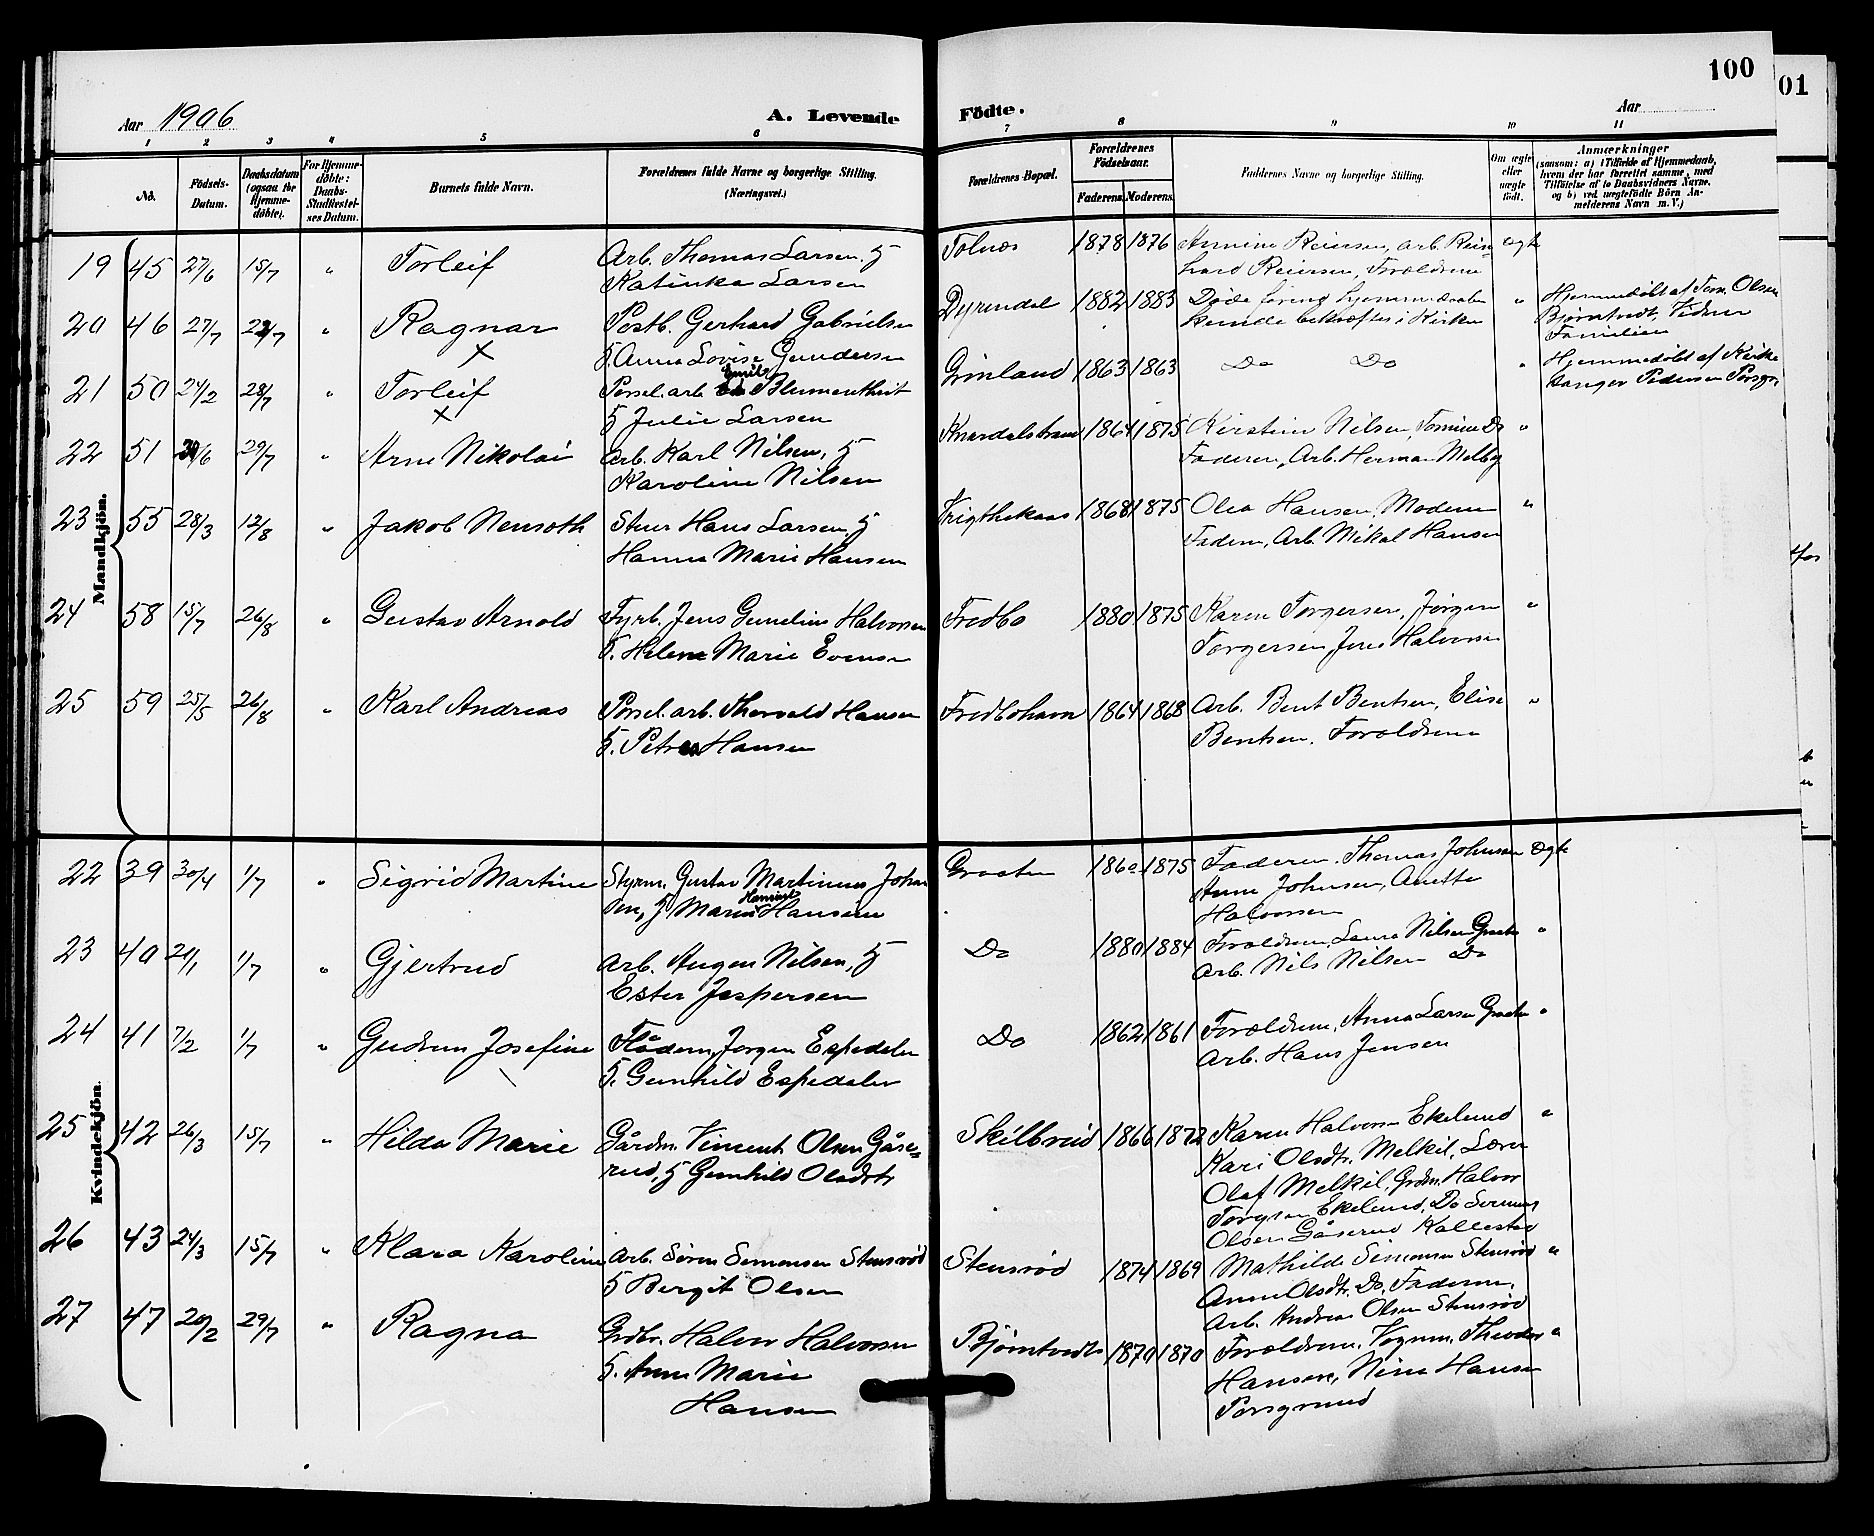 100
01
Aar 1906
A. Levende Födte.
Aar
1 2 3 4 5 6 7 8 9 10 11
No.
Födsels-Datum.
Daabsdatum (ogsaa for Hjemmedöbte).
For Hjemmedöbte: Daabs-Stadfæstelses Datum.
Barnets fulde Navn.
Forældrenes fulde Navne og borgerlige Stilling. (Næringsvei.)
Forældrenes Bopæl.
Forældrenes Födselsaar.
Faderens. Moderens.
Faddernes Navne og borgerlige Stilling.
Om ægte eller uægte födt.
Anmærkninger
(saasom: a) i Tilfælde af Hjemmedaab, hvem der har forrettet samme, med Tilföielse af to Daabsvidners Navne, og b) ved uægtefödte Börn Anmelderens Navn m. V.)
Mandkjön.
19 45 27/6 15/7 " Torleif Arb. Thomas Larsen, h Tolnæs 1878 1876 Annine Reiersen, arb. Rein- ægte
Katinka Larsen hard Reiersen, Forældrene
20 46 27/7 " Ragnar Postb. Gerhard Gabrielsen Dyrendal 1882 1883 Døde førend hjemmedaaben " Hjemmedøbt af Olsen
X h. Anna Lovise Gundersen kunde bekræftes i Kirken Bjørntvedt, Vidner Familien
21 50 24/2 28/7 " Torleif Porsel. arb. Emil Blumenthut Grinland 1863 1863 Do Do " Hjemmedøbt af Kirke
X h Julie Larsen sanger Pedersen Porsgr.
22 51 29/7 " Arne Nikolai Arb. Karl Nilsen, h Knardalstrand 1864 1875 Kirstine Nilsen, Tomine Do "
Karoline Nilsen Faderen, Arb. Herman Melby
23 55 28/3 12/8 " Jakob Nensoth Stuer Hans Larsen, h Frigthskaas 1868 1875 Olea Hansen, Moderen "
Hanna Marie Hansen Faderen, Arb. Mikal Hansen
24 58 15/7 26/8 " Gustav Arnold Fyrb. Jens Gunelius Halvorsen Fredbo 1880 1875 Karen Torgersen, Jørgen "
h. Helene Marie Evensen Torgersen, Jens Halvorsen
25 59 25/5 26/8 " Karl Andreas Porsel. arb. Thorvald Hansen Fredbohavn 1864 1868 Arb. Bent Bentsen, Elise "
h. Petrea Hansen Bentsen, Forældrene
Kvindekjön.
22 39 30/4 1/7 " Sigrid Martine Styrm. Gustav Martinius Johan Graaten 1860 1875 Faderen, Thomas Johnsen ægte
sen, h Maren Hansine Hansen Anne Johnsen, Anette
Halvorsen
23 40 20/1 1/7 " Gjertrud Arb. Augen Nilsen, h Do 1880 1884 Forældrene, Laura Nilsen Graaten "
Ester Jespersen Arb. Nils Nilsen Do
24 41 7/2 1/7 " Gudrun Josefine Jørgen Espedalen Do 1862 1861 Forældrene, Anna Larsen Graaten "
h. Gunhild Espedalen Arb. Hans Jensen
25 42 26/3 15/7 " Hilda Marie Gårdm. Vincent Olsen Gåse- Skilbreid 1866 1872 Karen Halvorsen Ekelund "
rud, h Gunhild Olsdtr Kari Olsdtr. Melkil, Lærer
Olaf Melkil, Grdm. Halvor
Torgersen Ekelund, Do
Olsen Gåserud Kallestad
26 43 24/3 15/7 " Klara Karoline Arb. Søren Simonsen Stensrød Stensrød 1874 1869 Mathilde Simonsen Stensrød "
h Bergit Olsen Anne Olsdtr. Do, Faderen,
Arb. Andreas Olsen Stensrød
27 47 20/2 29/7 " Ragna Grdbr. Halvor Halvorsen Bjørntvedt 1870 1870 Forældrene, Vognm. Theodor "
h. Anne Marie Hansen, Nina Hansen
Hansen Porsgrund